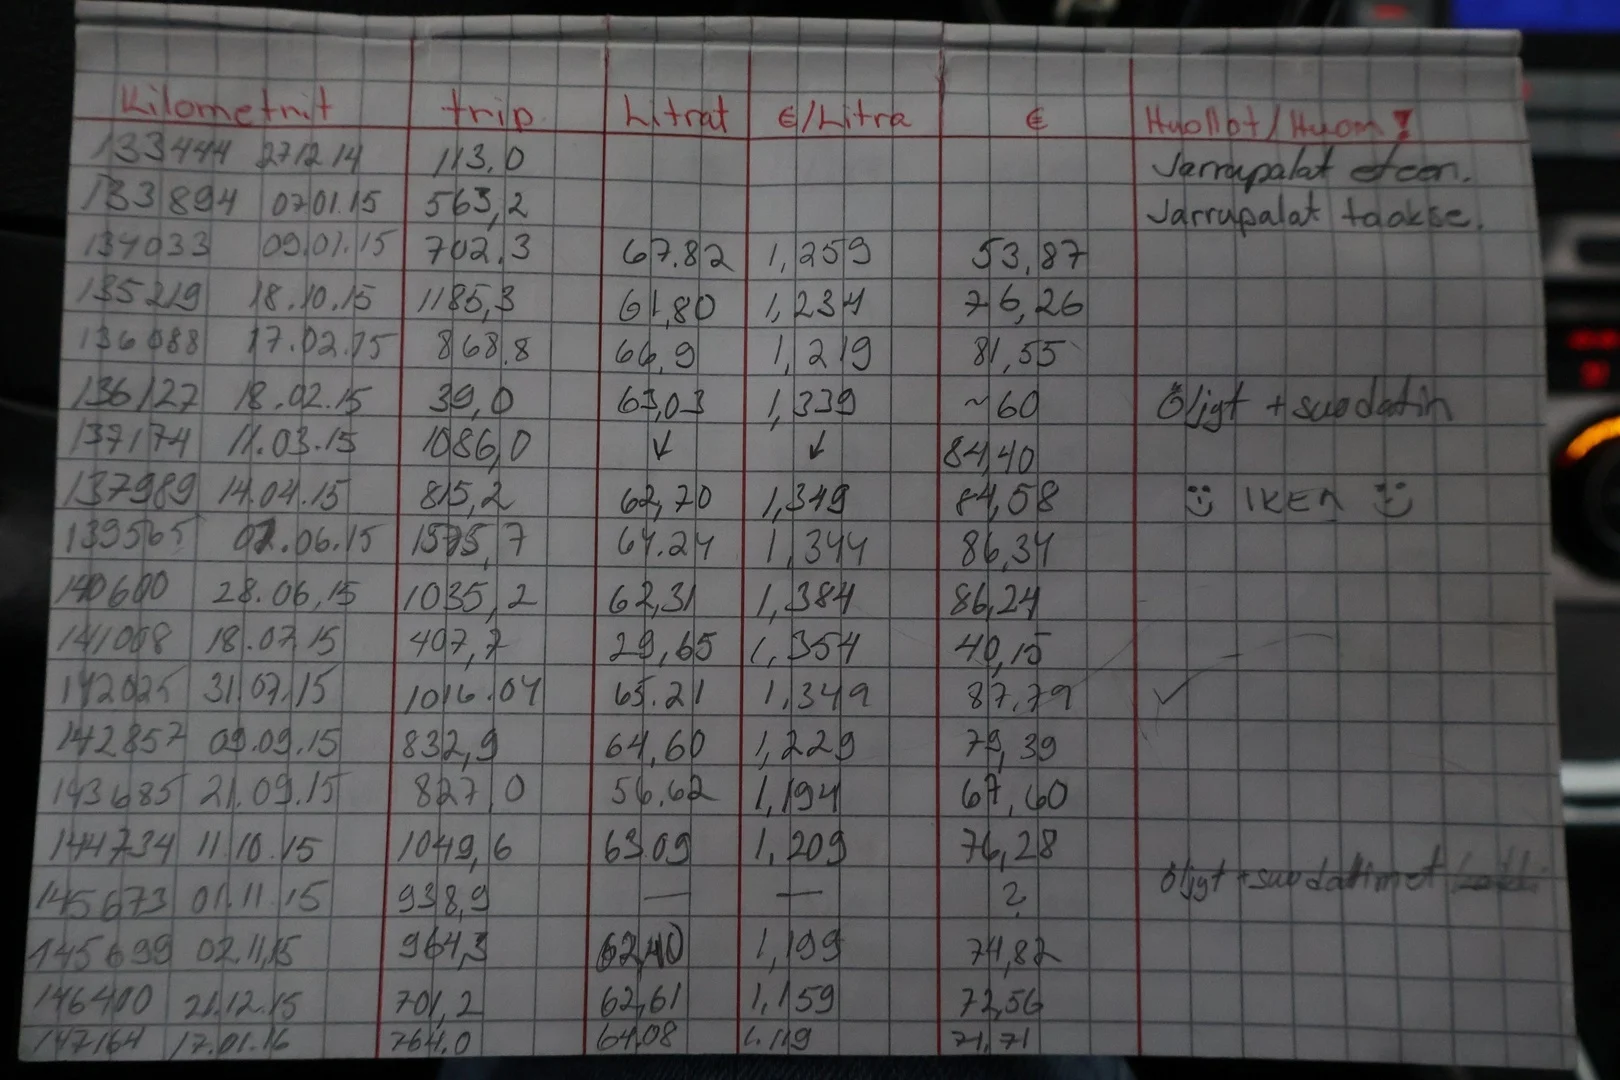 Kilometrit trip Litrat €/Litra € Huollot/Huom!
133444 27.12.14 113,0 Jarrupalat eteen.
133894 07.01.15 563,2 Jarrupalat taakse.
134033 09.01.15 702,3 67.82 1,259 53,87
135219 18.10.15 1185,3 61,80 1,234 76,26
136088 17.02.15 868.8 66,9 1,219 81,55
136127 18.02.15 39,0 63,03 1,339 ~60 Öljyt + suodatin
137174 11.03.15 1086,0 ↓ ↓ 84,40
137989 14.04.15 815,2 62,70 1,349 84,58 IKEA
139565 02.06.15 1575,7 64.24 1,344 86,34
140600 28.06.15 1035,2 62,31 1,384 86,24
141008 18.07.15 407,7 29,65 1,354 40,15
142025 31.07.15 1016.04 65.21 1,349 87,79
142857 09.09.15 832,9 64,60 1,229 79,39
143685 21.09.15 827,0 56.62 1,194 67,60
144734 11.10.15 1049,6 63.09 1,209 76,28
145673 01.11.15 938,9 — — ? Öljyt + suodattimet
145699 02.11.15 964,3 62,40 1,199 74,82
146400 21.12.15 701,2 62,61 1,159 72,56
147164 17.01.16 764.0 64.08 1.119 71,71